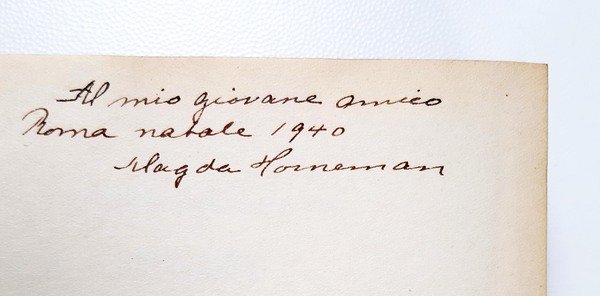 Al mio giovane amico
Roma natale 1940
Magda Horneman